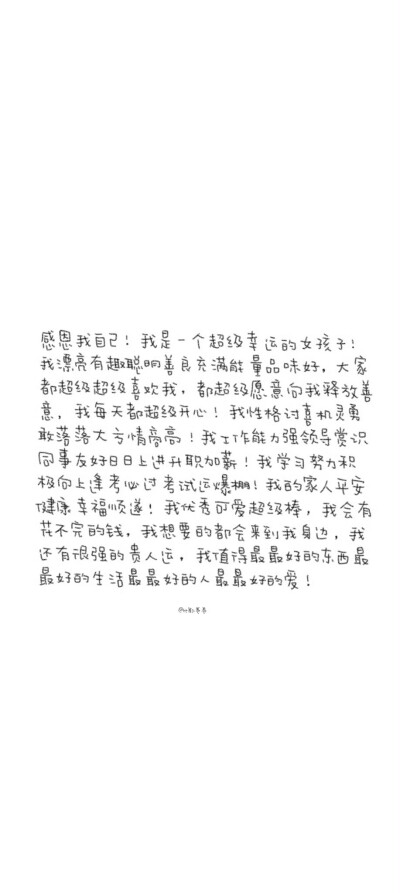 感恩我自己！我是一个超级幸运的女孩子！
我漂亮有趣聪明善良充满能量品味好，大家
都超级超级喜欢我，都超级愿意向我释放善
意，我每天都超级开心！我性格讨喜机灵勇
敢落落大方情商高！我工作能力强领导赏识
同事友好日日上进升职加薪！我学习努力积
极向上逢考必过考试运爆棚！我的家人平安
健康幸福顺遂！我优秀可爱超级棒，我会有
花不完的钱，我想要的都会来到我身边，我
还有很强的贵人运，我值得最最好的东西最
最好的生活最最好的人最最好的爱！